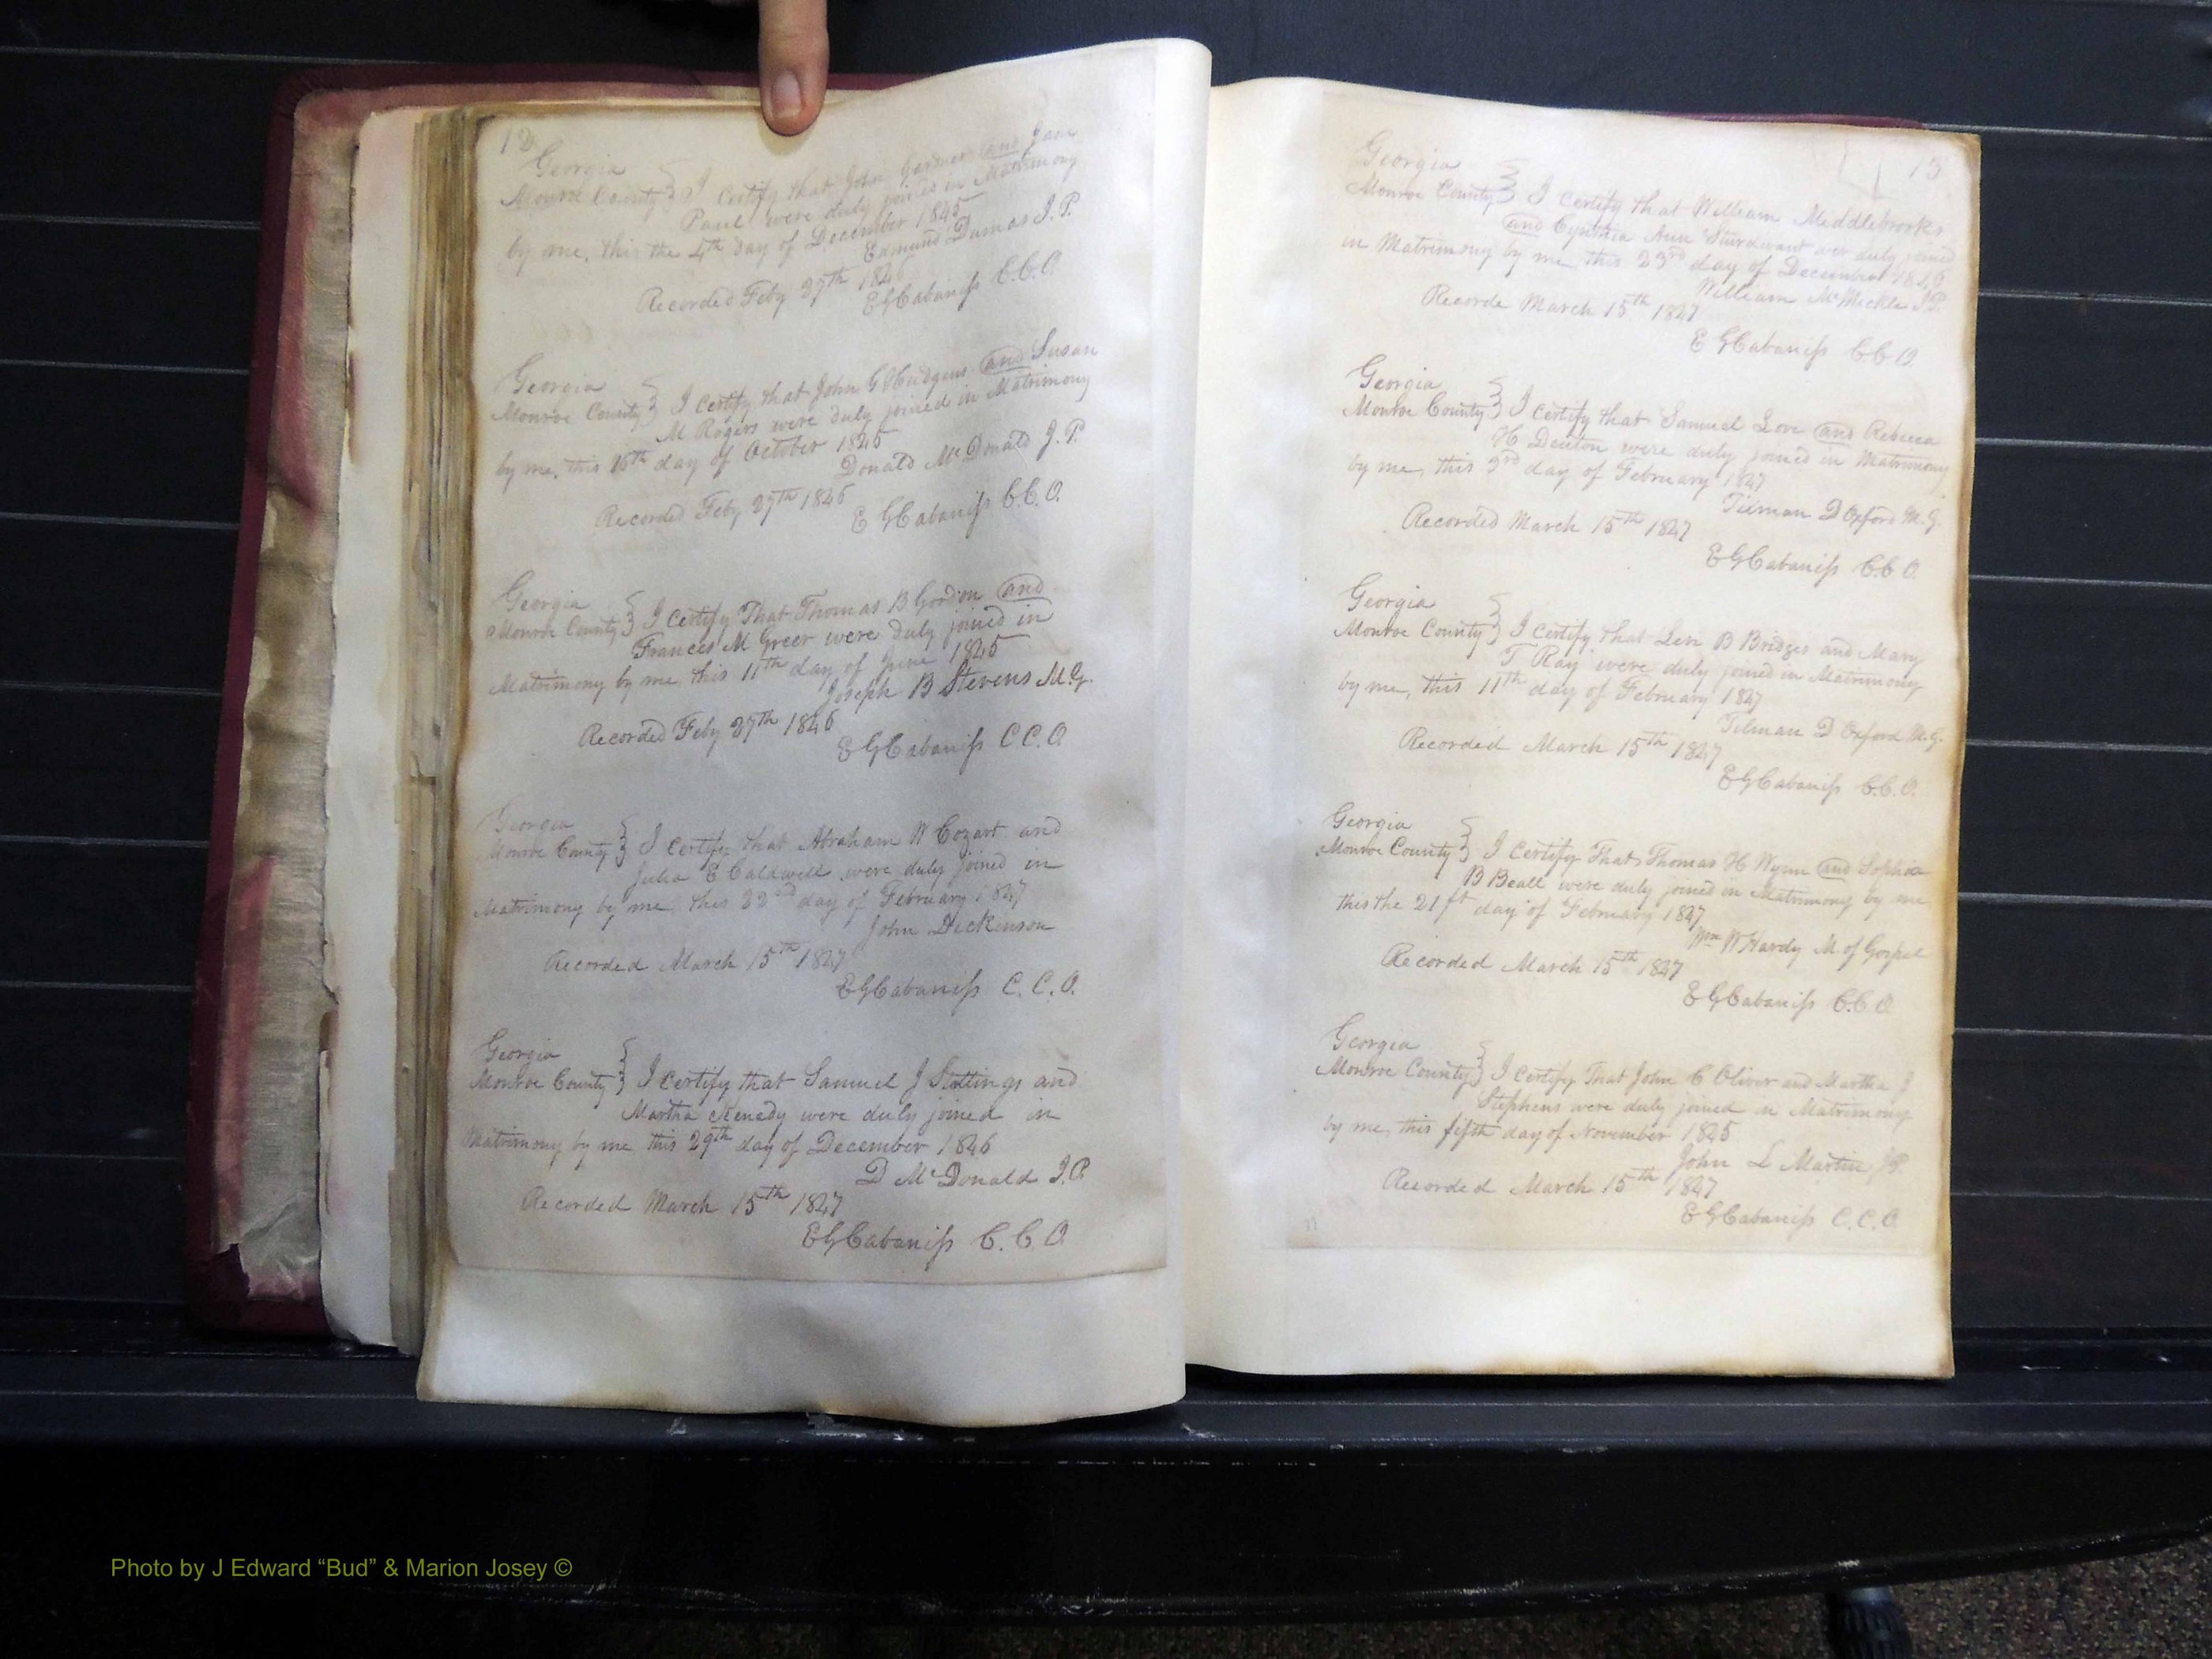 12
Georgia
Monroe County } I certify that John Garner and Jane
Paul were duly joined in Matrimony
by me, this the 4th day of December 1845
Edmund Dumas J. P.
Recorded Feby 27th 1846
EGCabaniss C.C.O.
Georgia
Monroe County } I certify that John G Hudgins and Susan
M Rogers were duly joined in Matrimony
by me, this 16th day of October 1845
Donald McDonald J. P.
Recorded Feby 27th 1846
E GCabaniss C.C.O.
Georgia
Monroe County } I certify That Thomas B Gordon and
Frances M Greer were duly joined in
Matrimony by me this 11th day of June 1845
Joseph B Stevens M.G.
Recorded Feby 27th 1846
EGCabaniss C C. O
Georgia
Monroe County } I certify that Abraham W Cozart and
Julia E Caldwell were duly joined in
Matrimony by me this 22nd day of February 1847
John Dickinson
Recorded March 15th 1847
EGCabaniss C. C. O.
Georgia
Monroe County } I certify that Samuel J Stallings and
Martha Kenedy were duly joined in
Matrimony by me this 29th day of December 1846
D McDonald J.P.
Recorded March 15th 1847
EGCabaniss C. C O
13
Georgia
Monroe County } I certify that William Meddlebrooks
and Cynthia Ann Sturdivant wer duly joined
in Matrimony by me this 23rd day of December 1846
William McMickle J.P.
Recorde March 15th 1847
E GCabaniss C.C O.
Georgia
Monroe County } I certify that Samuel Love and Rebecca
H Denton were duly joined in Matrimony
by me, this 3rd day of February 1847
Tilman D Oxford M.G.
Recorded March 15th 1847
EGCabaniss C.C O.
Georgia
Monroe County } I certify that Levi B Bridges and Mary
T Ray were duly joined in Matrimony
by me, this 11th day of February 1847
Tilman D Oxford M.G.
Recorded March 15th 1847
EGCabaniss C.C.O.
Georgia
Monroe County } I certify That Thomas H Wynn and Sophia
B Beall were duly joined in Matrimony by me
this the 21st day of February 1847
Wm W Hardy M of Gospel
Recorded March 15th 1847
EGCabaniss C.C O
Georgia
Monroe County } I certify That John C Oliver and Martha J
Stephens were duly joined in Matrimony
by me, this fifth day of November 1845
John L Martin J.P.
Recorded March 15th 1847
EGCabaniss C. C. O
Photo by J Edward “Bud” & Marion Josey ©